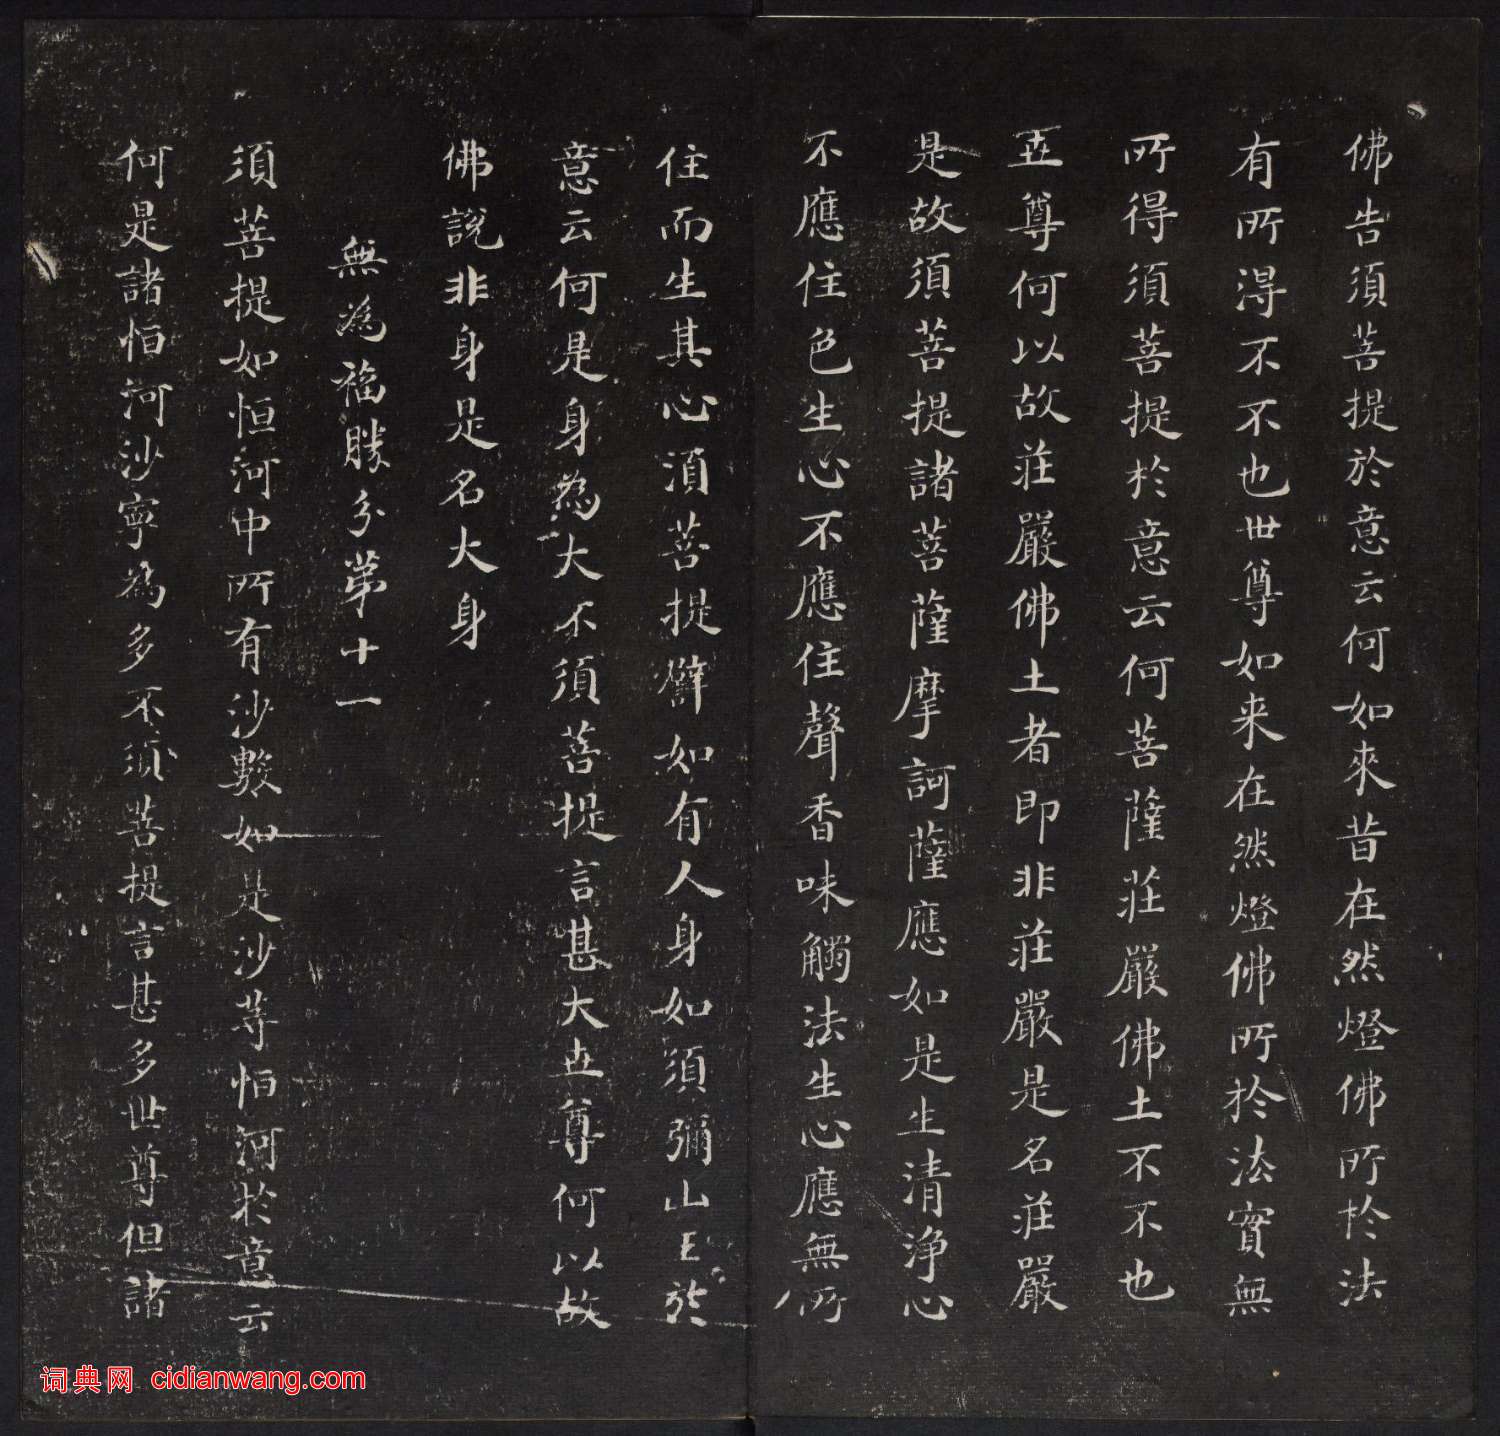 佛告須菩提於意云何如來昔在然燈佛所於法
有所淂不不也世尊如来在然燈佛所於法實無
所得須菩提於意云何菩薩莊嚴佛土不不也
世尊何以故莊嚴佛土者即非莊嚴是名莊嚴
是故須菩提諸菩薩摩訶薩應如是生清淨心
不應住色生心不應住聲香味觸法生心應無所
住而生其心湏菩提譬如有人身如須彌山王於
意云何是身為大不須菩提言甚大世尊何以故
佛説非身是名大身
無為福勝分第十一
須菩提如恒河中所有沙數如是沙等恒河於意云
何是諸恒河沙寧為多不須菩提言甚多世尊但諸
词典网 cidianwang.com